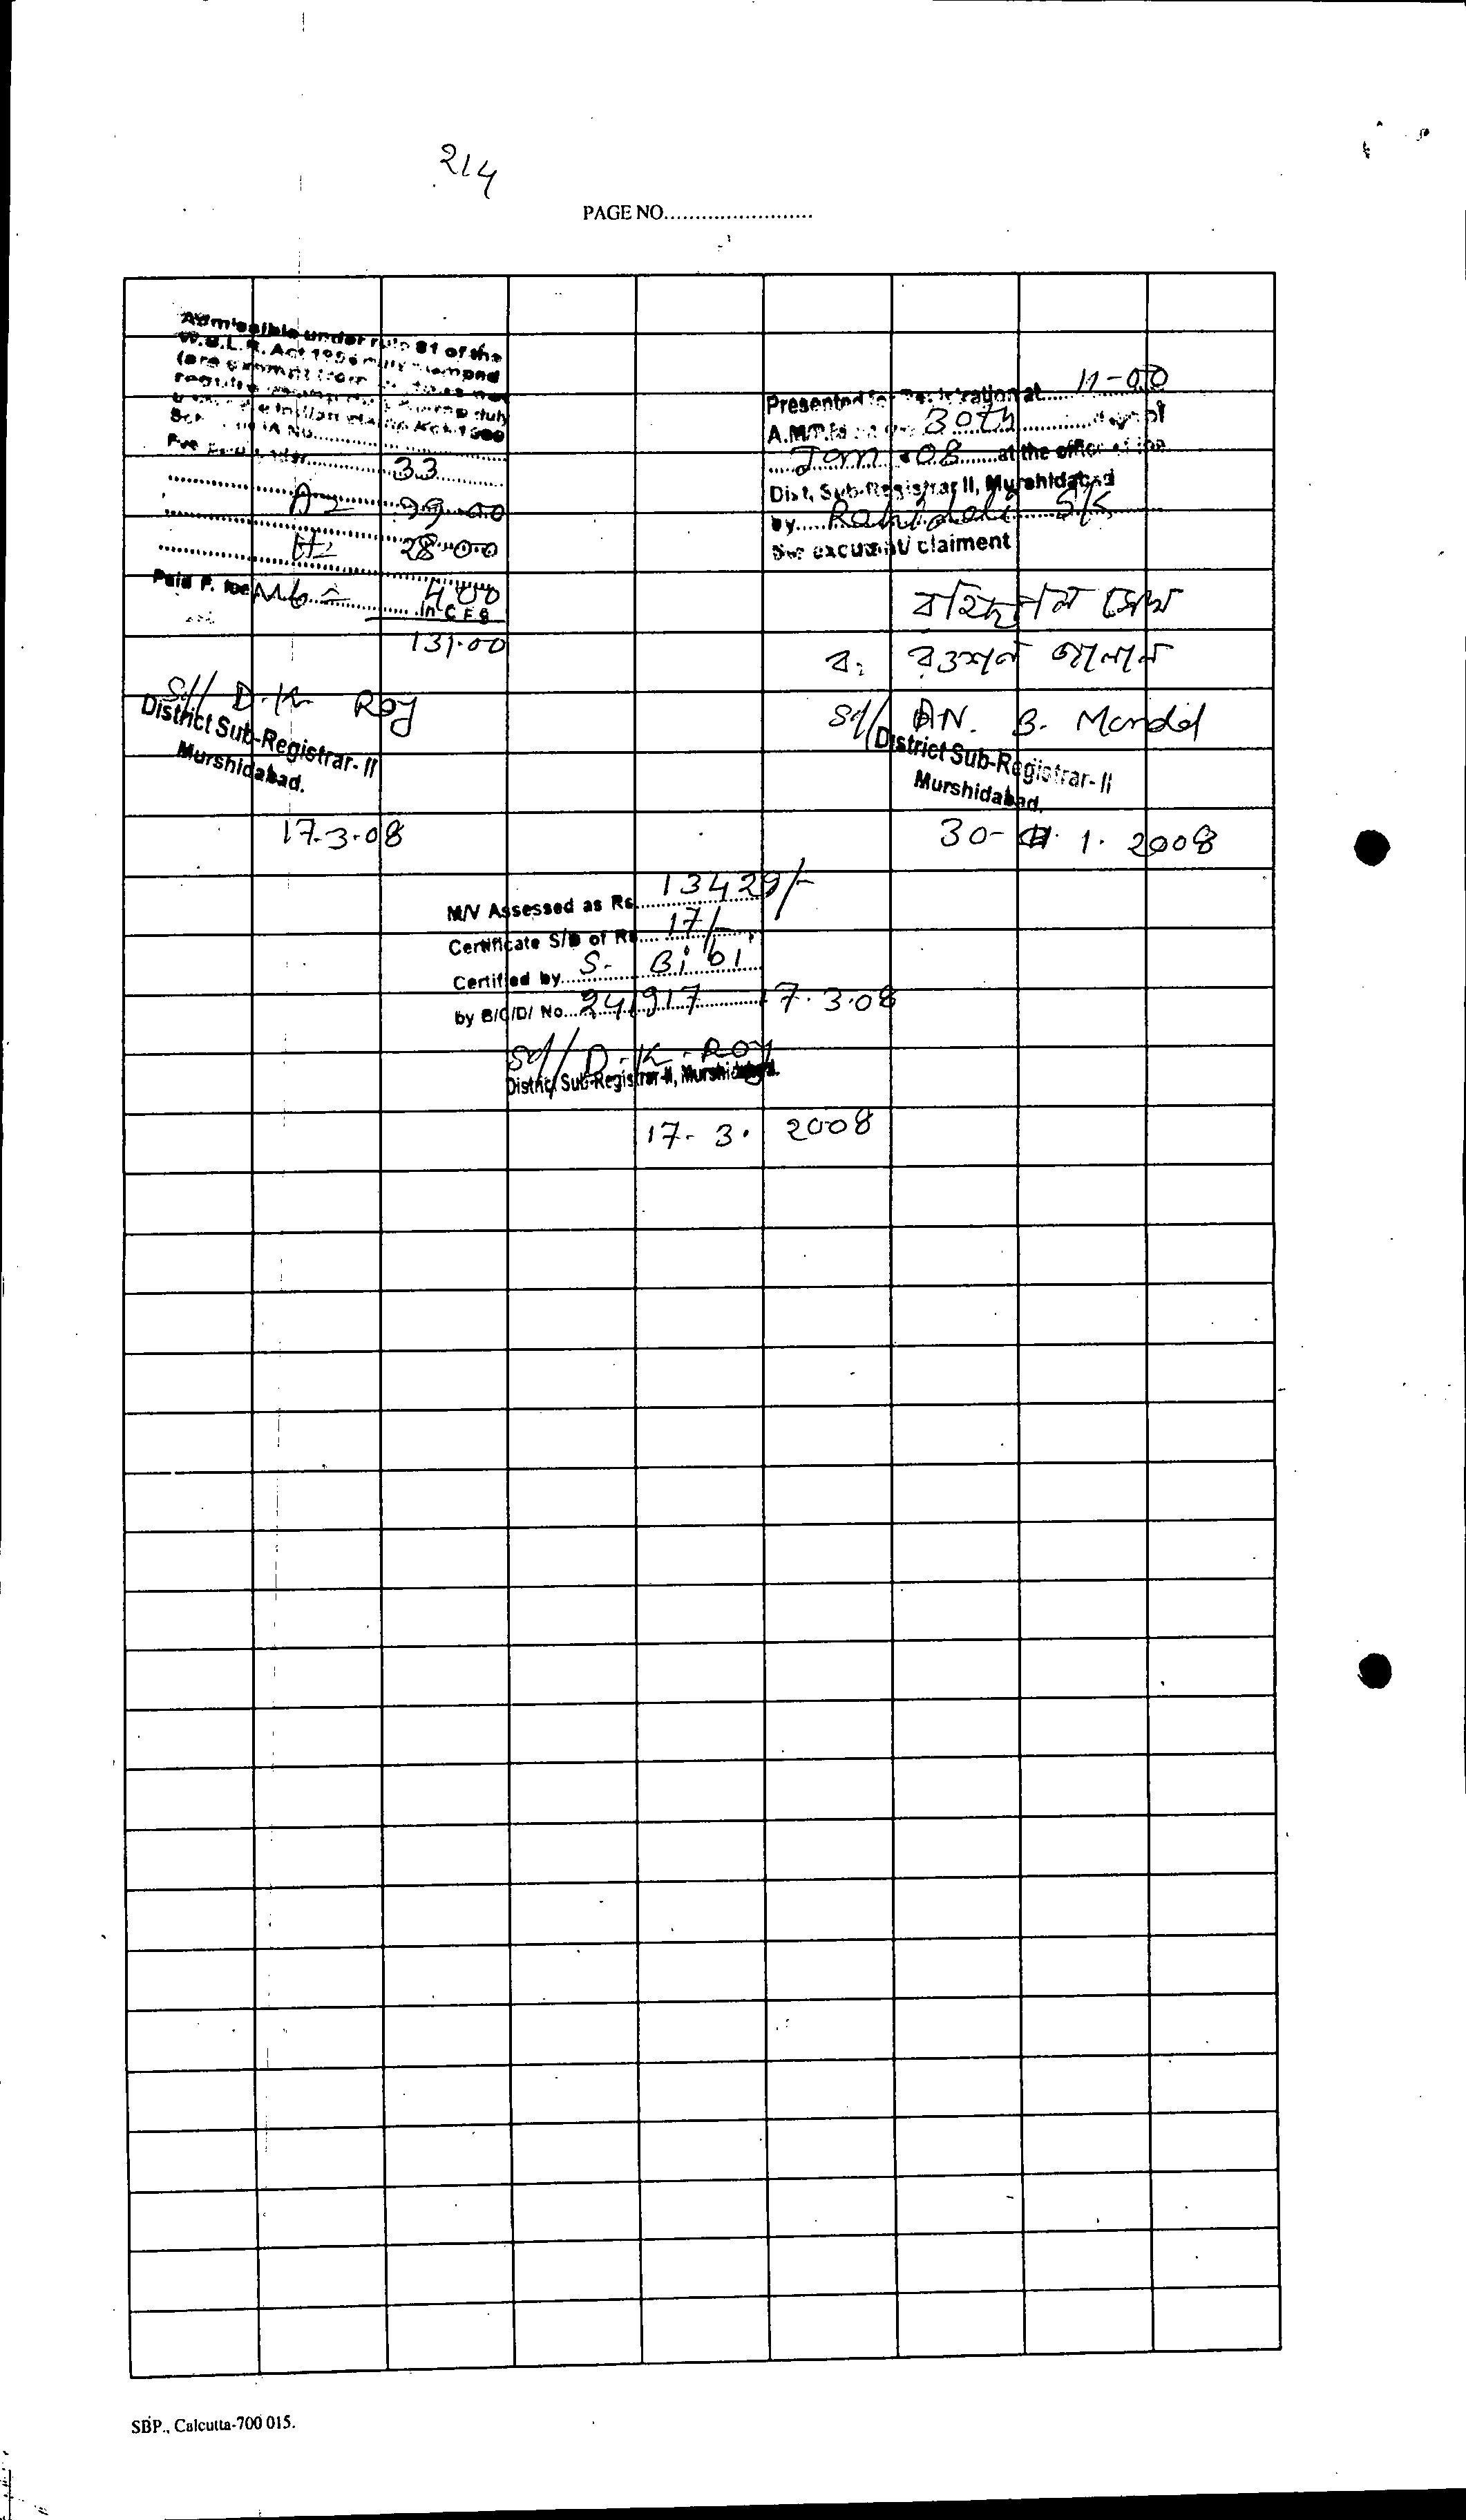 214
PAGE NO........................
Admissible under rule 81 of the
W.B.L.R. Act 1956
Schedule IA No.
33
A = 99-00
H = 28-00
Paid P. fee M6 = 4-00
in C F S
131-00
Sd/ D.K. Roy
District Sub-Registrar-II
Murshidabad.
17-3-08
Presented for Registration at 11-00
A.M. 30th day of
Jan - 08 at the office of the
Dist, Sub-Registrar II, Murshidabad
by
claiment
সেখ
ব: রওশন
Sd/ AN. B. Mondal
District Sub-Registrar-II
Murshidabad.
30- 1. 2008
M/V Assessed as Rs. 13429/-
Certificate S/D of Rs. 17/-
Certified by S. Bibi
by B/C/D/ No. 241917 17.3.08
Sd/ D.K. Roy
District Sub-Registrar-II, Murshidabad.
17- 3. 2008
SBP., Calcutta-700 015.